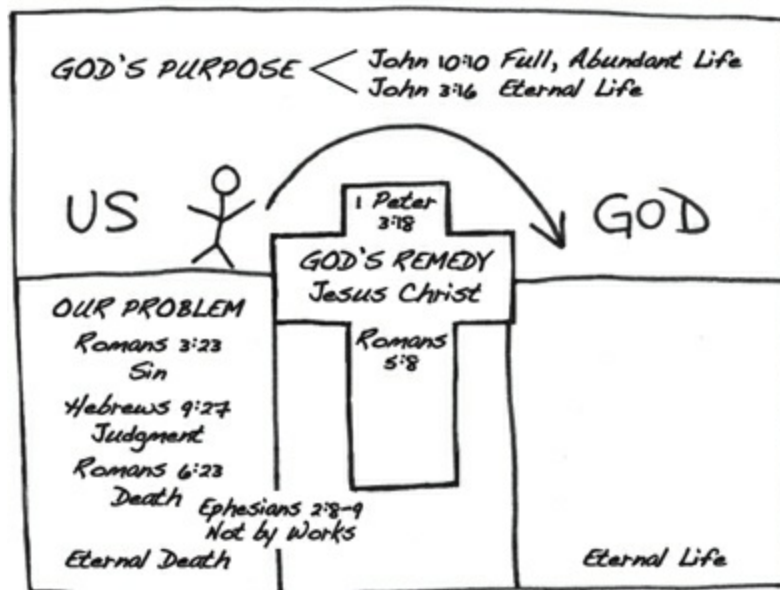 GOD'S PURPOSE
John 10:10 Full, Abundant Life
John 3:16 Eternal Life
US
GOD
1 Peter
3:18
GOD'S REMEDY
Jesus Christ
Romans
5:8
OUR PROBLEM
Romans 3:23
Sin
Hebrews 9:27
Judgment
Romans 6:23
Death
Ephesians 2:8-9
Not by Works
Eternal Death
Eternal Life